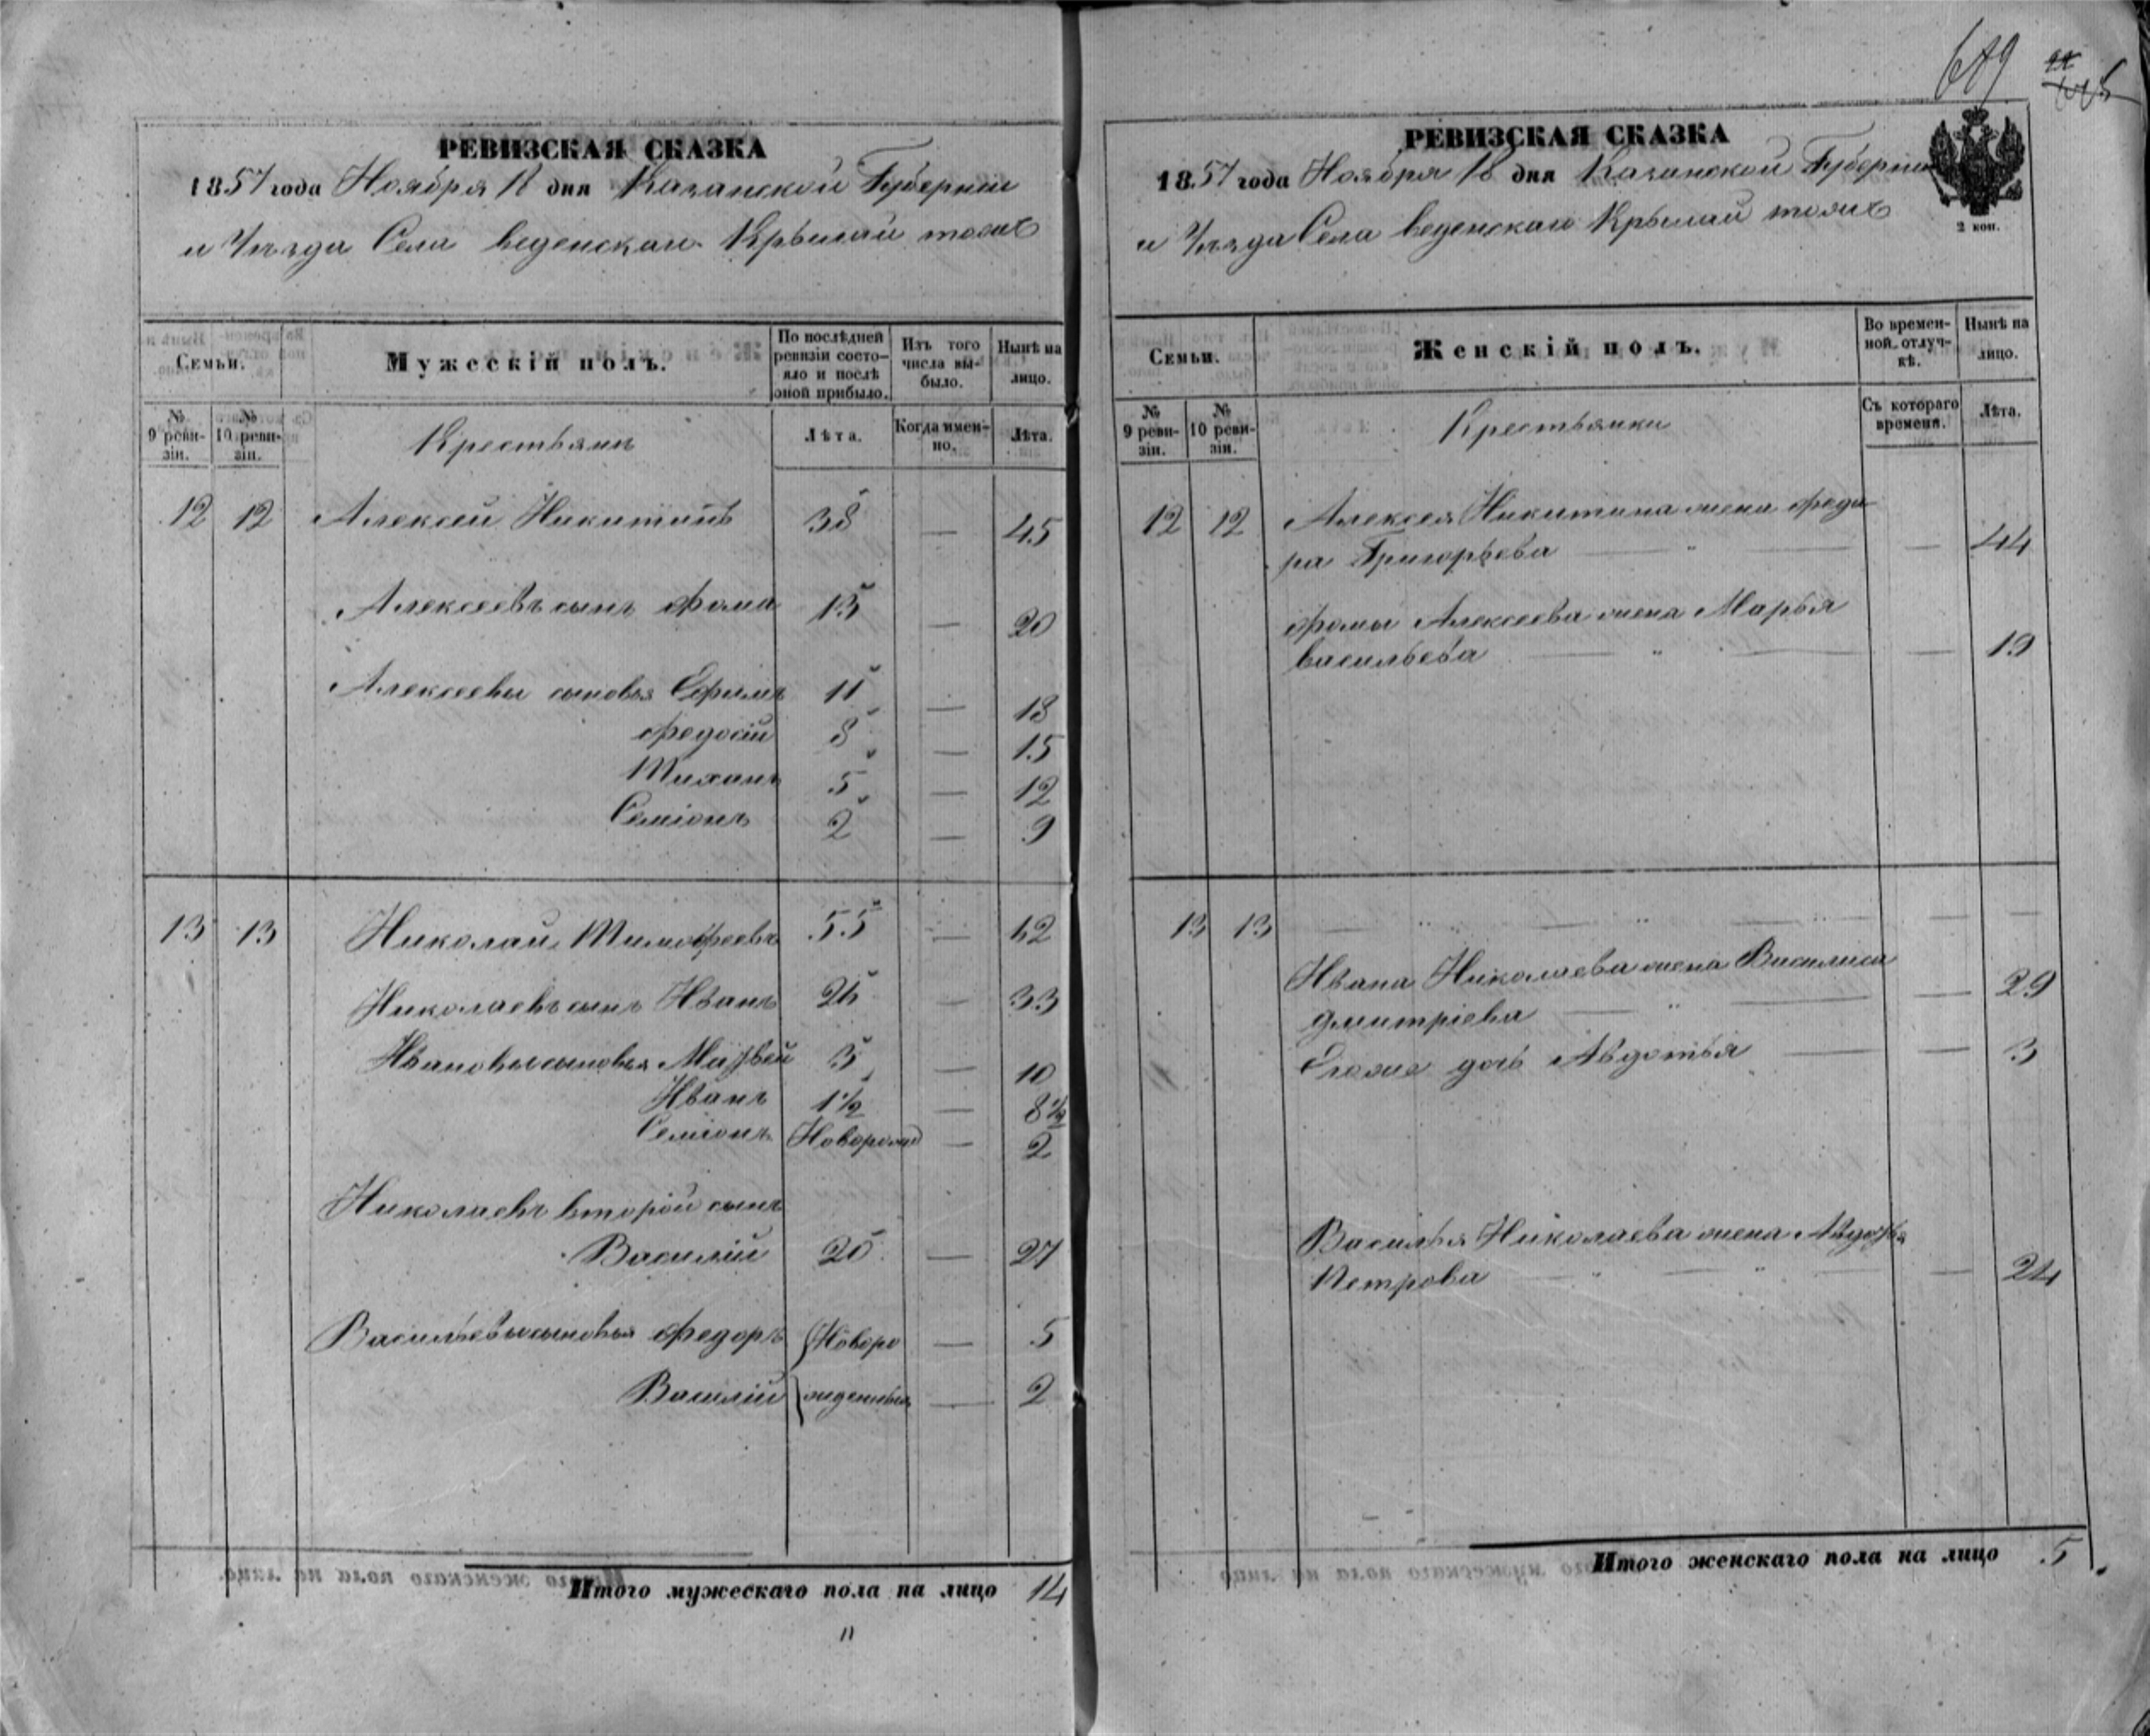 689
РЕВИЗСКАЯ СКАЗКА
1857 года Ноября 18 дня Казанской Губернии
и Уезда Села Веденскаго Крылай тожъ
Семьи.
Мужескій полъ.
По послѣдней ревизіи состояло и послѣ оной прибыло.
Изъ того числа выбыло.
Нынѣ на лицо.
№ 9 ревизіи.
№ 10 ревизіи.
Крестьянъ
Лѣта.
Когда именно.
Лѣта.
12 12 Алексей Никитинъ 38 — 45
Алексеевъ сынъ Фома 13 — 20
Алексеевы сыновья Ефимъ 11 — 18
Федосій 8 — 15
5 — 12
Семіонъ 2 — 9
13 13 Николай Тимофеевъ 55 — 62
Николаевъ сынъ Иванъ 26 — 33
Ивановы сыновья Матвей 3 — 10
Иванъ 1½ — 8½
Семіонъ Новорожд — 2
Николаевъ второй сынъ
Василій 20 — 27
Васильевы сыновья Федоръ Новоро — 5
Василій жденныя — 2
Итого мужескаго пола на лицо 14
РЕВИЗСКАЯ СКАЗКА
1857 года Ноября 18 дня Казанской Губерніи
и Уезда Села Веденскаго Крылай тожъ
2 коп.
Семьи.
Женскій полъ.
Во временной отлучкѣ.
Нынѣ на лицо.
№ 9 ревизіи.
№ 10 ревизіи.
Крестьянки
Съ котораго времени.
Лѣта.
12 12 Алексея Никитина жена Федо
ра Григорьева — " — — 44
Фомы Алексеева жена Марья
Васильева — " — — 19
13 13 — " — " — " — —
Ивана Николаева жена Василиса
Дмитріева — " — — 29
Егоже дочь Авдотья — — 3
Василья Николаева жена Авдотья
Петрова — " — " — — 24
Итого женскаго пола на лицо 5